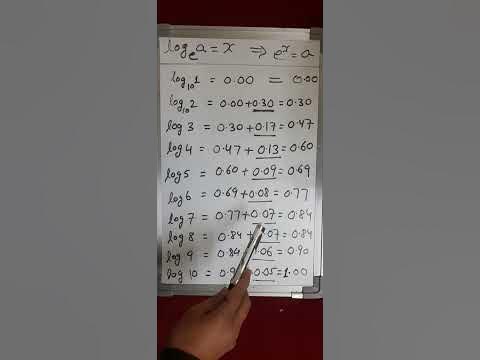 logₑa = x ⇒ eˣ = a
log₁₀1 = 0.00 = 0.00
log₁₀2 = 0.00+0.30 = 0.30
log 3 = 0.30+0.17 = 0.47
log 4 = 0.47+0.13 = 0.60
log 5 = 0.60+0.09 = 0.69
log 6 = 0.69+0.08 = 0.77
log 7 = 0.77+0.07 = 0.84
log 8 = 0.84+ .07 = 0.84
log 9 = 0.84 .06 = 0.90
log 10 = 0.9 0.05 = 1.00